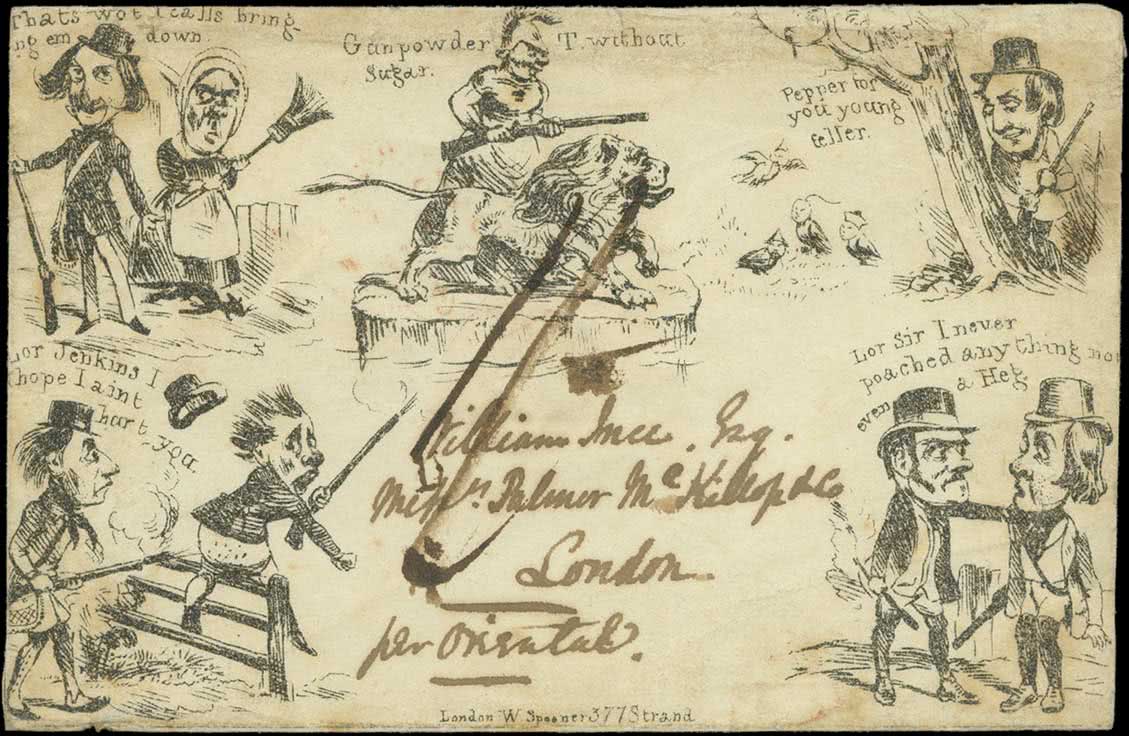 Thats wot I calls bring-
ng em down.
Gunpowder T. without
Sugar.
Pepper for
you young
feller.
Lor Jenkins I
hope I aint
hurt you
Lor Sir I never
poached any thing not
even a Heg
William Ince, Esq.
Messrs. Palmer McKillop & Co
London
per Oriental.
London W Spooner 377 Strand